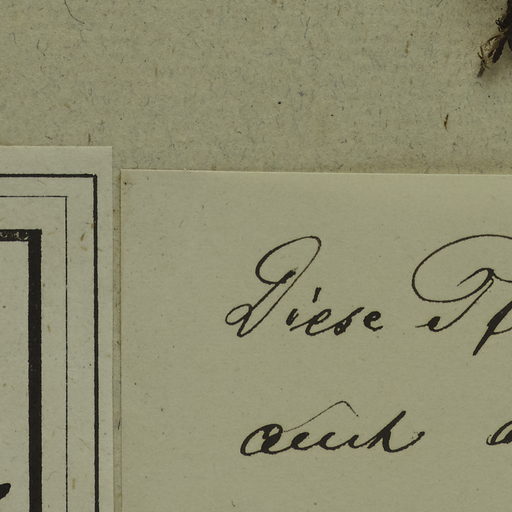 Diese
auch